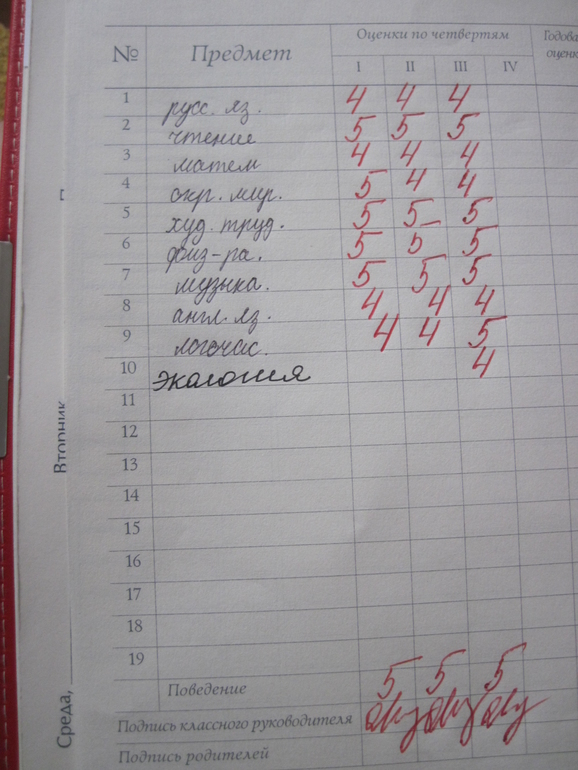 № Предмет Оценки по четвертям Годова
I II III IV оценк
1 русс. яз. 4 4 4
2 чтение 5 5 5
3 матем 4 4 4
4 окр. мир. 5 4 4
5 худ. труд. 5 5 5
6 физ-ра. 5 5 5
7 музыка. 5 5 5
8 англ. яз. 4 4 4
9 логочас. 4 4 5
10 экология 4
11
12
13
14
15
16
17
18
19
Поведение 5 5 5
Подпись классного руководителя
Подпись родителей
Вторник
Среда,